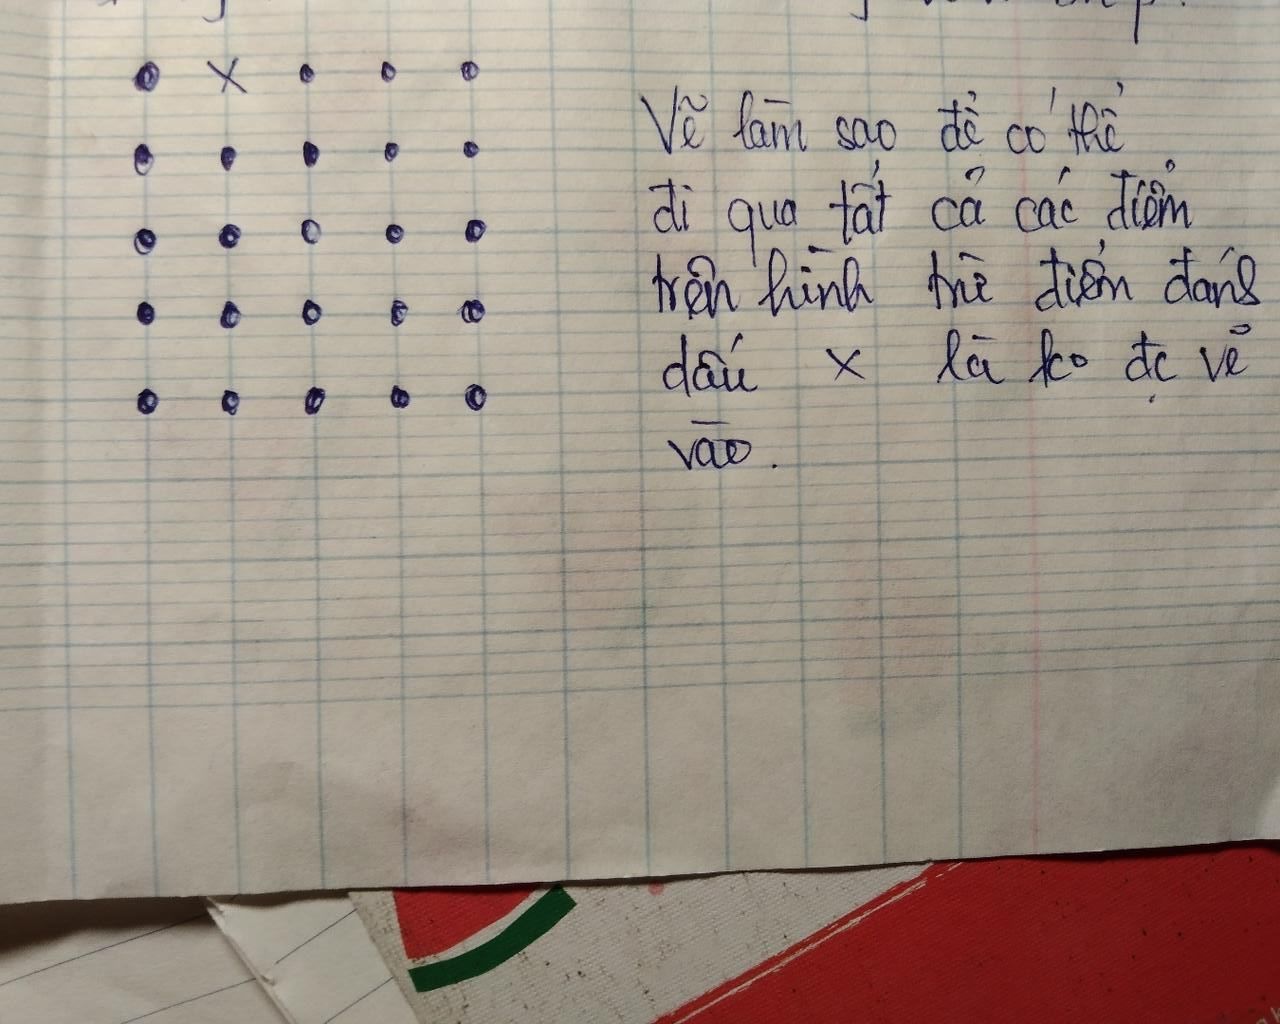 Vẽ làm sao để có thể
đi qua tất cả các điểm
trên hình trừ điểm đánh
dấu x là ko đc vẽ
vào.